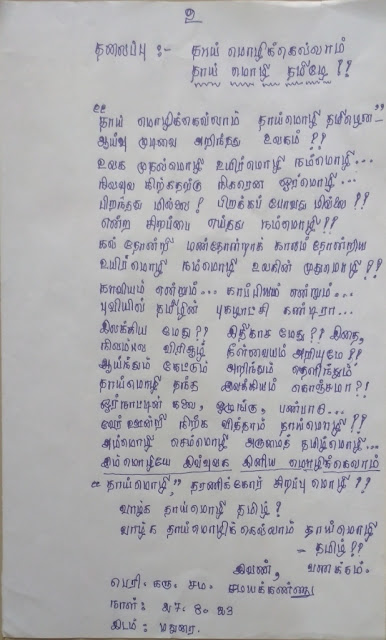 ௧
தலைப்பு :- தாய் மொழிக்கெல்லாம்
தாய் மொழி தமிழே ??
“ தாய் மொழிக்கெல்லாம் தாய்மொழி தமிழென ”
ஆய்வு முடிவை அறிந்தது உலகம் ??
உலக முதல்மொழி உயிர்மொழி நம்மொழி...
நிலவுல கிற்கதற்கு நிகரென ஓர்மொழி...
பிறந்தது மில்லை ? பிறக்கப் போவது மில்லை ??
என்ற சிறப்பை எய்தது நம்மொழி ??
கல் தோன்றி மண்தோன்றாக் காலம் தோன்றிய
உயிர்மொழி நம்மொழி உலகின் முதுமொழி ??
காவியம் என்றும்... காப்பியம் என்றும்...
புவியில் தமிழின் புகழாட்சி கண்டீரா...
இலக்கிய மேது ?? இதிகாச மேது ?? இதை,
நிலமுல விரிசூழ் நீள்வையம் அறியுமே ??
ஆய்ந்தும் கேட்டும் அறிந்தும் தெளிந்தும்
தாய்மொழி தந்த இலக்கியம் கொஞ்சமா ?!
ஓர்நாட்டின் கலை, ஒழுங்கு, பண்பாடு...
வேர் ஊன்றி நிற்க வித்தாம் தாய்மொழி ??
அம்மொழி செம்மொழி அருமைத் தமிழ்மொழி...
இம்மொழியே இவ்வுலக இனிய மொழிக்கெலாம்
“ தாய்மொழி,” தரணிக்கோர் சிறப்பு மொழி ??
வாழ்க தாய்மொழி தமிழ் ?
வாழ்க தாய்மொழிக்கெல்லாம் தாய்மொழி
- தமிழ் ??
இவண், வணக்கம்.
பெரி. கரு. சம. சமயக்கண்ணு
நாள் : 27. 10. 23
இடம் : மதுரை.